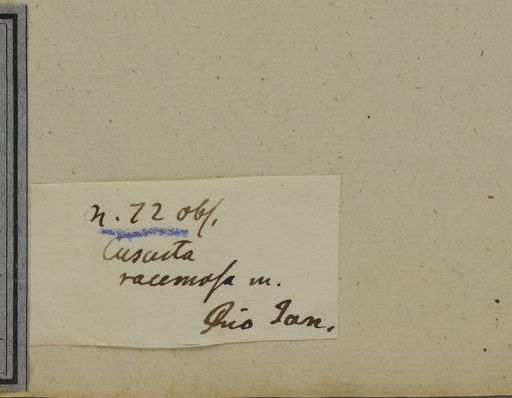 n. 72 obſ.
Cuscuta
racemoſa m.
Rio Jan.